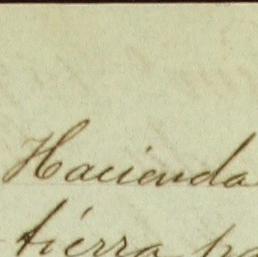 Hacienda
tierra pa